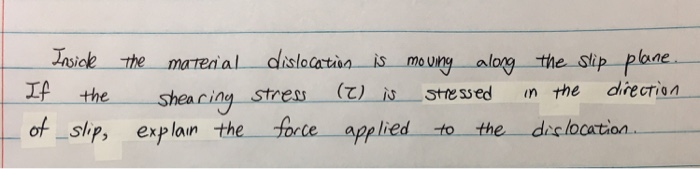 Inside the material dislocation is moving along the slip plane.
If the shearing stress (τ) is stressed in the direction
of slip, explain the force applied to the dislocation.